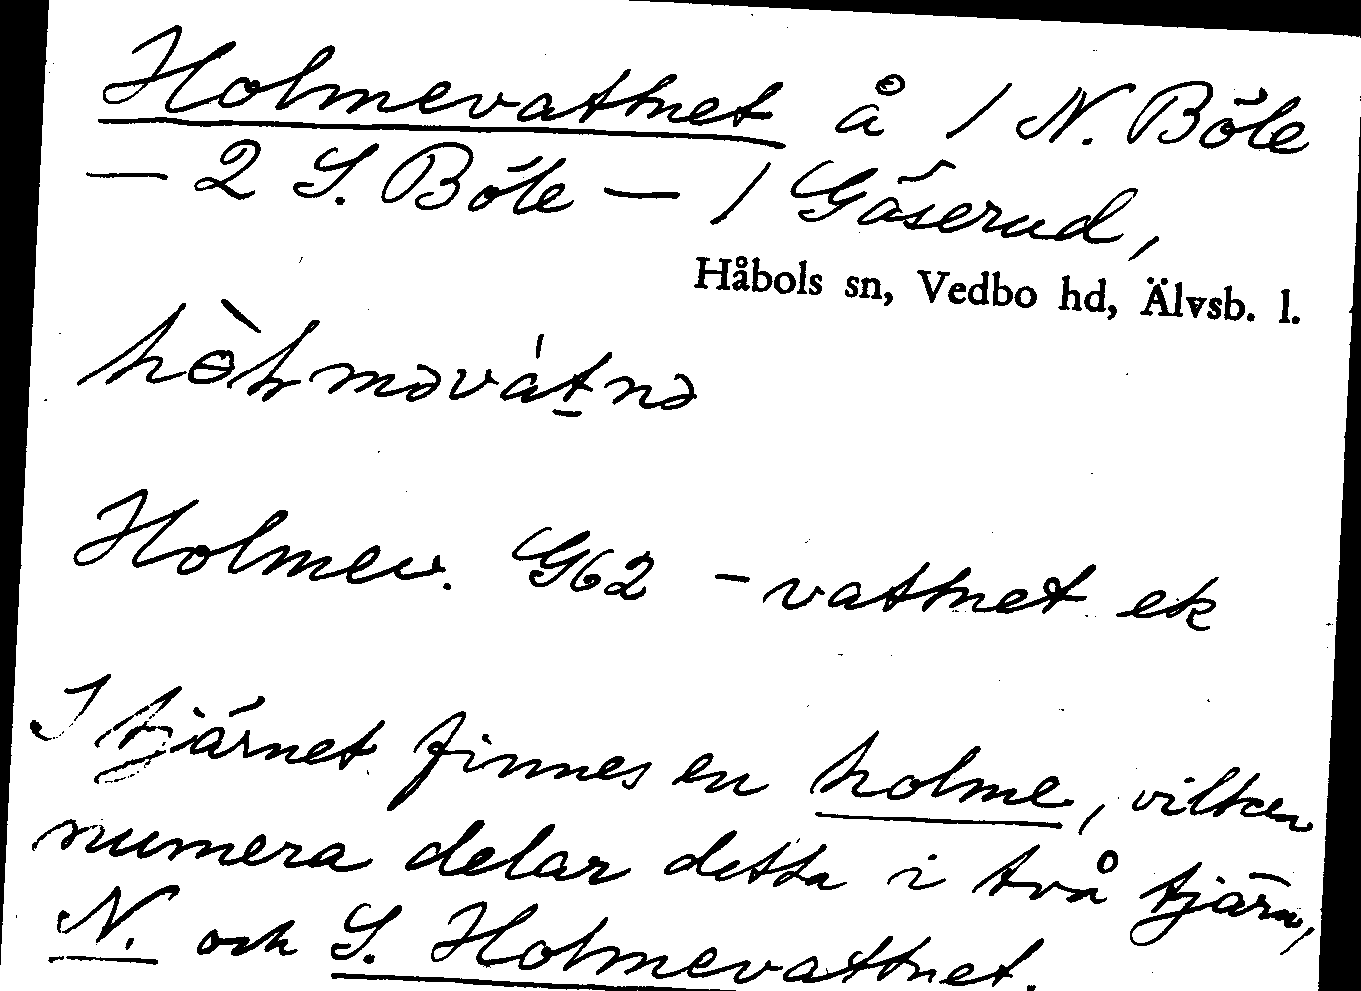 Holmevattnet å 1 N. Böle
— 2 S. Böle — 1 Gäserud,
Håbols sn, Vedbo hd, Älvsb. l.
Holmev. G62 -vattnet ek
I tjärnet finnes en holme, vilken
numera delar detta i två tjärn,
N. och S. Holmevattnet.